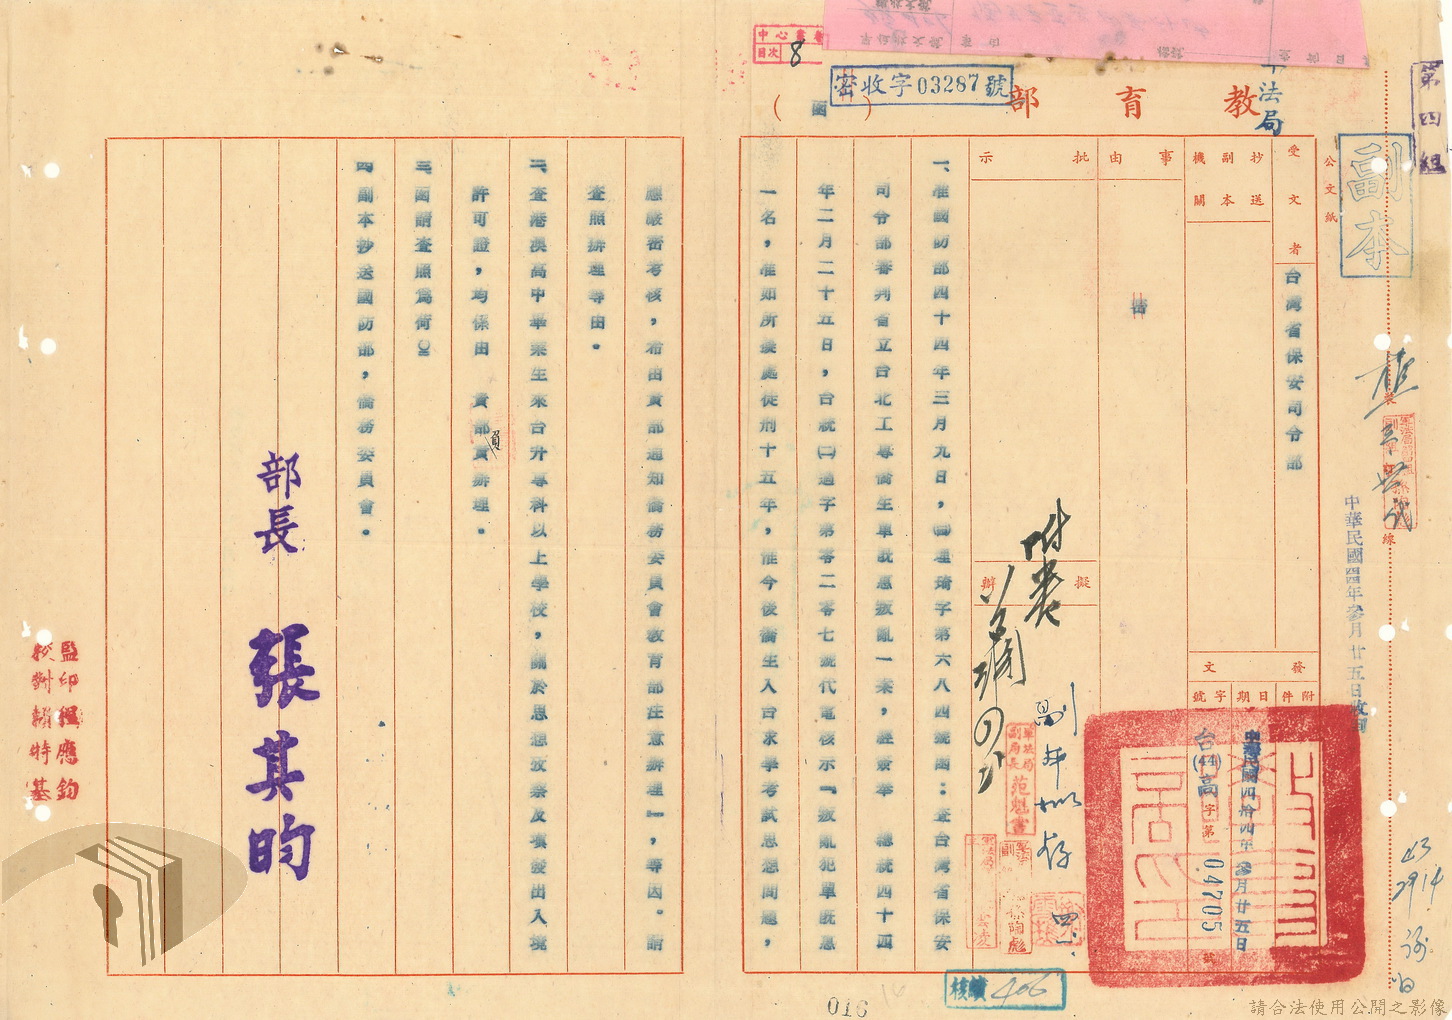 第四組
副本
公文紙
中華民國四四年參月廿五日收到
教育部
(函)
密收字03287號
軍法局
中心檔卷
目次 8
受文者
台灣省保安司令部
抄送副本機關
事由
密
批示
擬辦
發文
附件
日期
中華民國四拾四年參月廿五日
字號
台(44)高字第04705號
附卷
副本擬存
軍法局副局長范魁書
一、准國防部四十四年三月九日,㈣理琦字第六八四號函:查台灣省保安
司令部審判省立台北工專僑生單既惠叛亂一案,經簽奉 總統四十四
年二月二十五日,台統㈡適字第零二零七號代電核示『叛亂犯單既惠
一名,准如所擬處徒刑十五年,惟今後僑生入台求學考試思想問題,
應嚴密考核,希由貴部通知僑務委員會教育部注意辦理』,等因。請
查照辦理等由。
二、查港澳高中畢業生來台升專科以上學校,關於思想放察及填發出入境
許可證,均係由 貴部負責辦理。
三、函請查照為荷。
四、副本抄送國防部,僑務委員會。
部長 張其昀
監印 程應鈞
校對 賴特基
核
466
016
43
2914
裝
線
請合法使用公開之影像